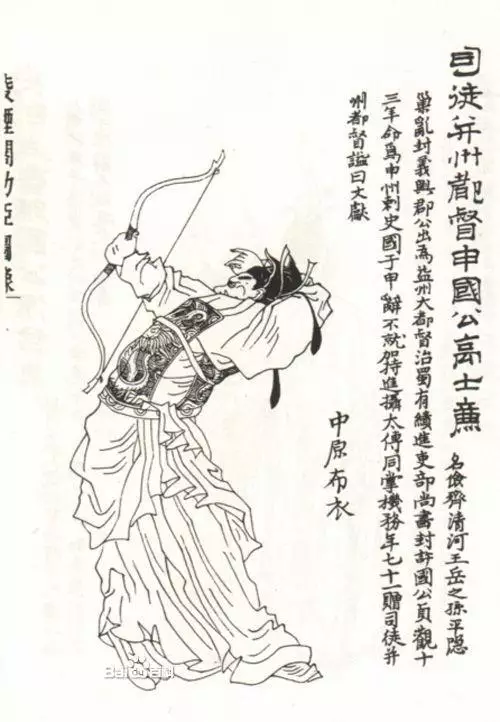 司徒并州都督申國公高士廉 名儉齊清河王岳之孫平隱
巢亂封義興郡公出為益州大都督治蜀有績進吏部尚書封許國公貞觀十
三年命為申州刺史國于甲辭不就加特進攝太傅同掌機務年七十一贈司徒并
州都督謚曰文獻
中原布衣
凌煙閣功臣圖像
Baidu百科